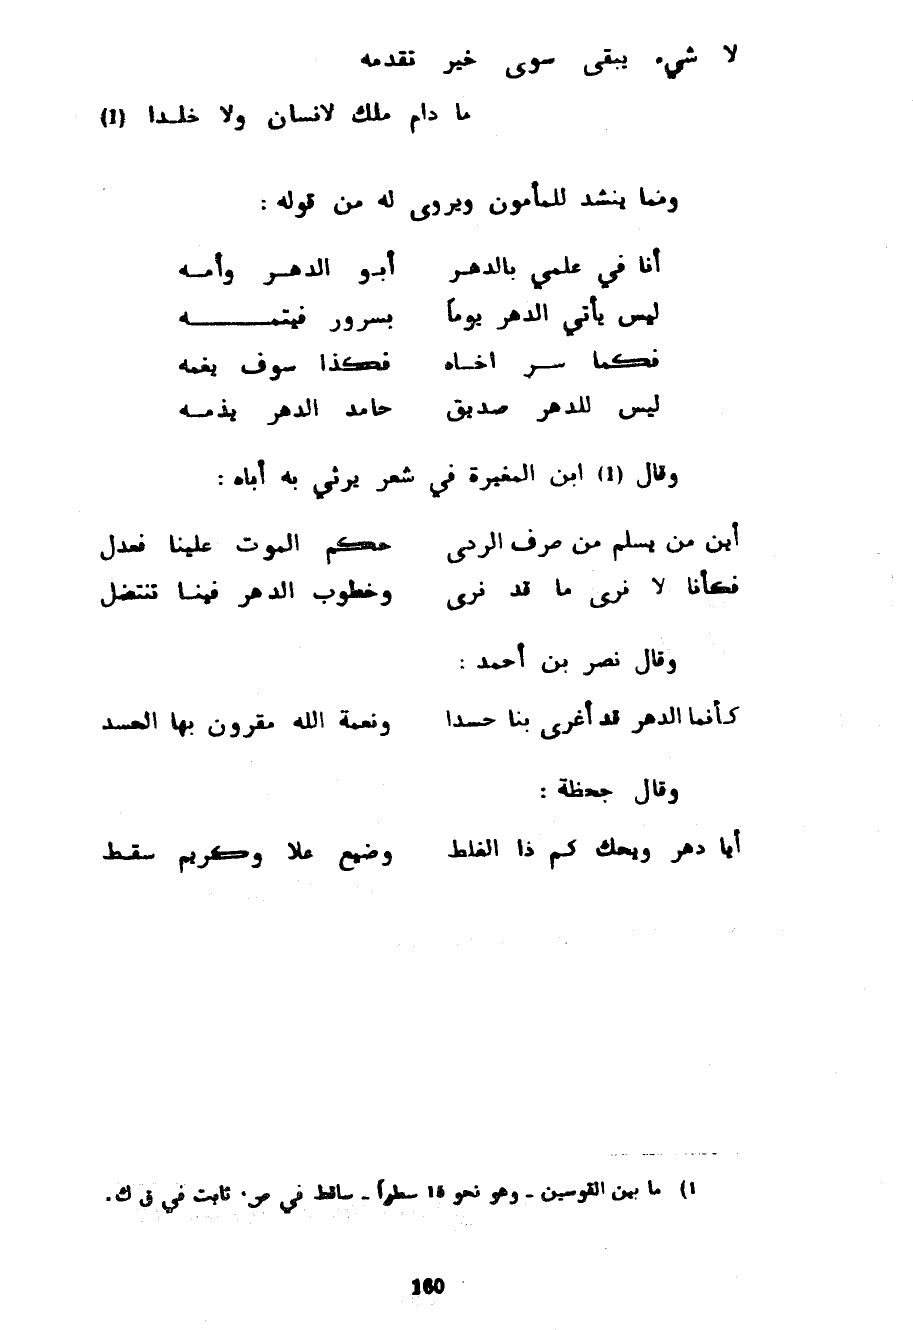 لا شيء يبقى سوى خير تقدمه
ما دام ملك لانسان ولا خلدا (1)
ومما ينشد للمأمون ويروى له من قوله :
أنا في علمي بالدهر أبو الدهر وأمه
ليس يأتي الدهر يوماً بسرور فيتمه
فكما سر اخاه فكذا سوف يغمه
ليس للدهر صديق حامد الدهر يذمه
وقال (1) ابن المغيرة في شعر يرثي به أباه :
أين من يسلم من صرف الردى حكم الموت علينا فعدل
فكأنا لا نرى ما قد نرى وخطوب الدهر فينا تنتضل
وقال نصر بن أحمد :
كأنما الدهر قد أغرى بنا حسدا ونعمة الله مقرون بها الحسد
وقال جحظة :
أيا دهر ويحك كم ذا الغلط وضيع علا وكريم سقط
1) ما بين القوسين ـ وهو نحو 15 سطراً ـ ساقط في ص٠ ثابت في ق ك.
160